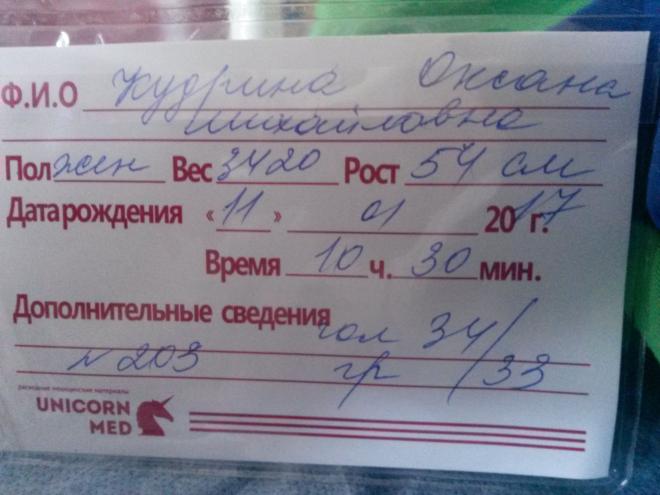 Ф.И.О Кудрина Оксана
Михайловна
Пол жен Вес 3420 Рост 54 см
Дата рождения «11» 01 2017 г.
Время 10 ч. 30 мин.
Дополнительные сведения гол 34/
N 203 гр /33
расходные медицинские материалы
UNICORN
MED